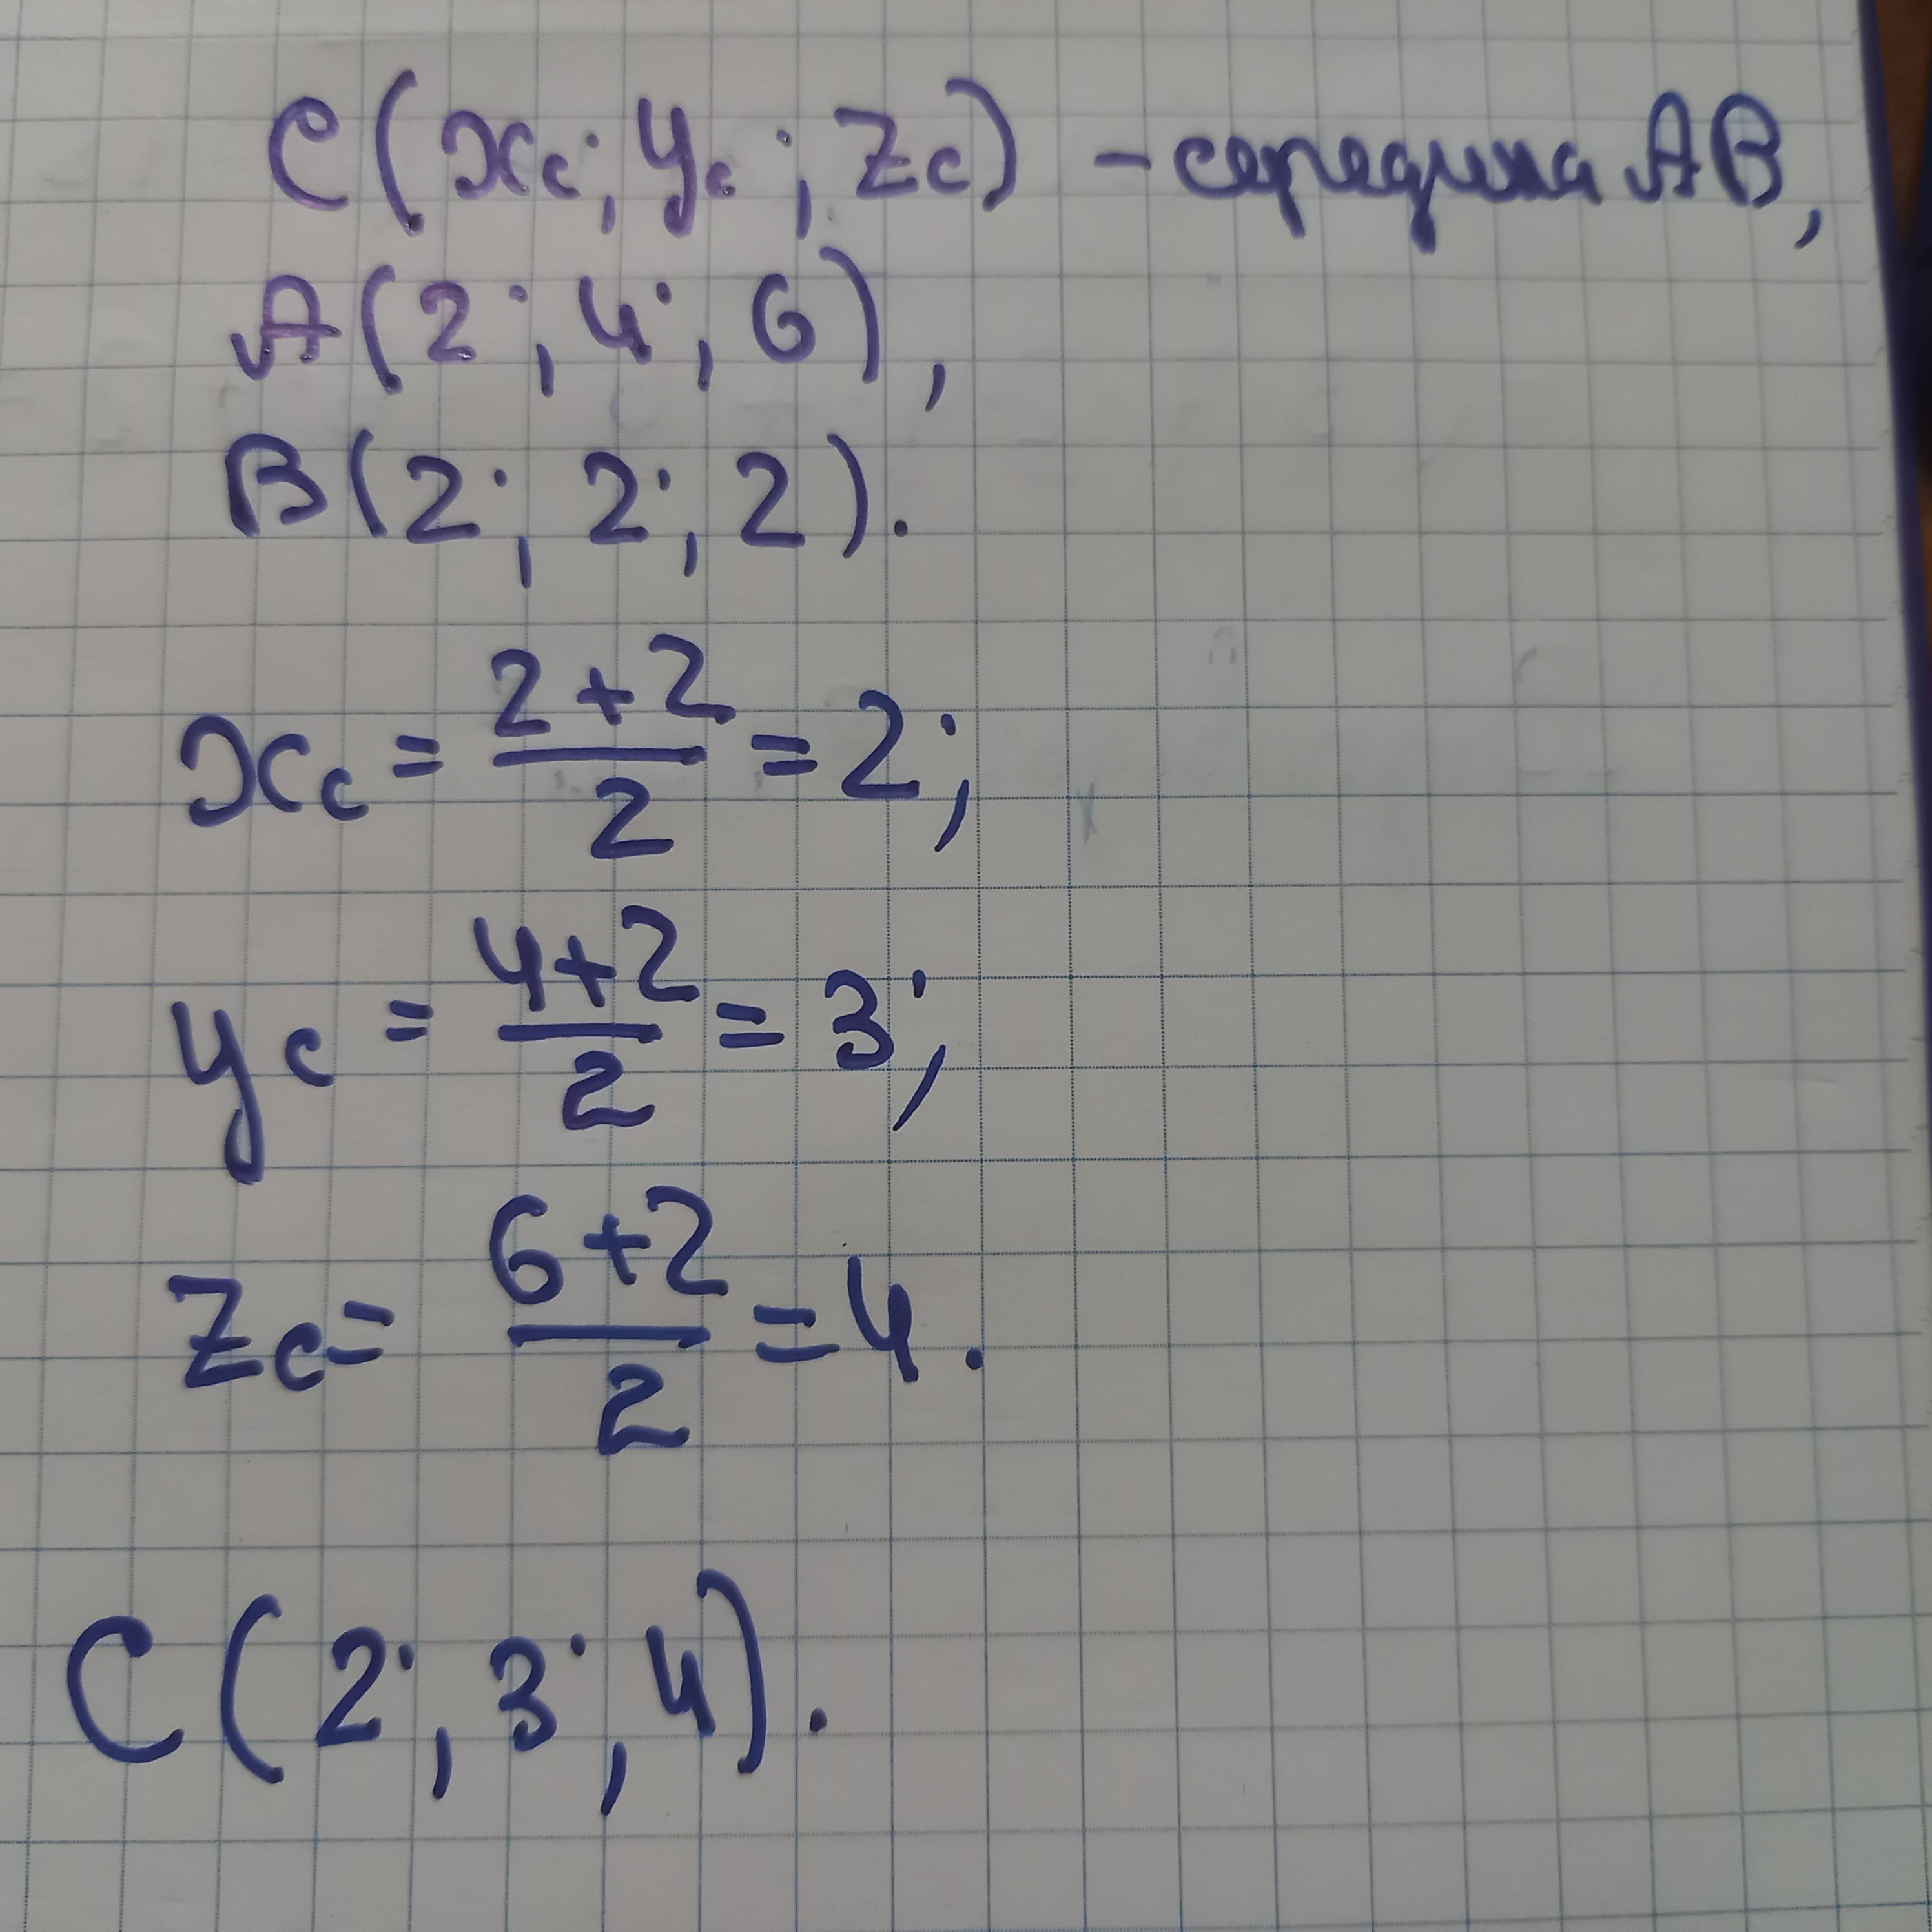 C(xc; yc; zc) - середина AB,
A(2; 4; 6),
B(2; 2; 2).
xc = (2+2)/2 = 2;
yc = (4+2)/2 = 3;
zc = (6+2)/2 = 4.
C(2; 3; 4).